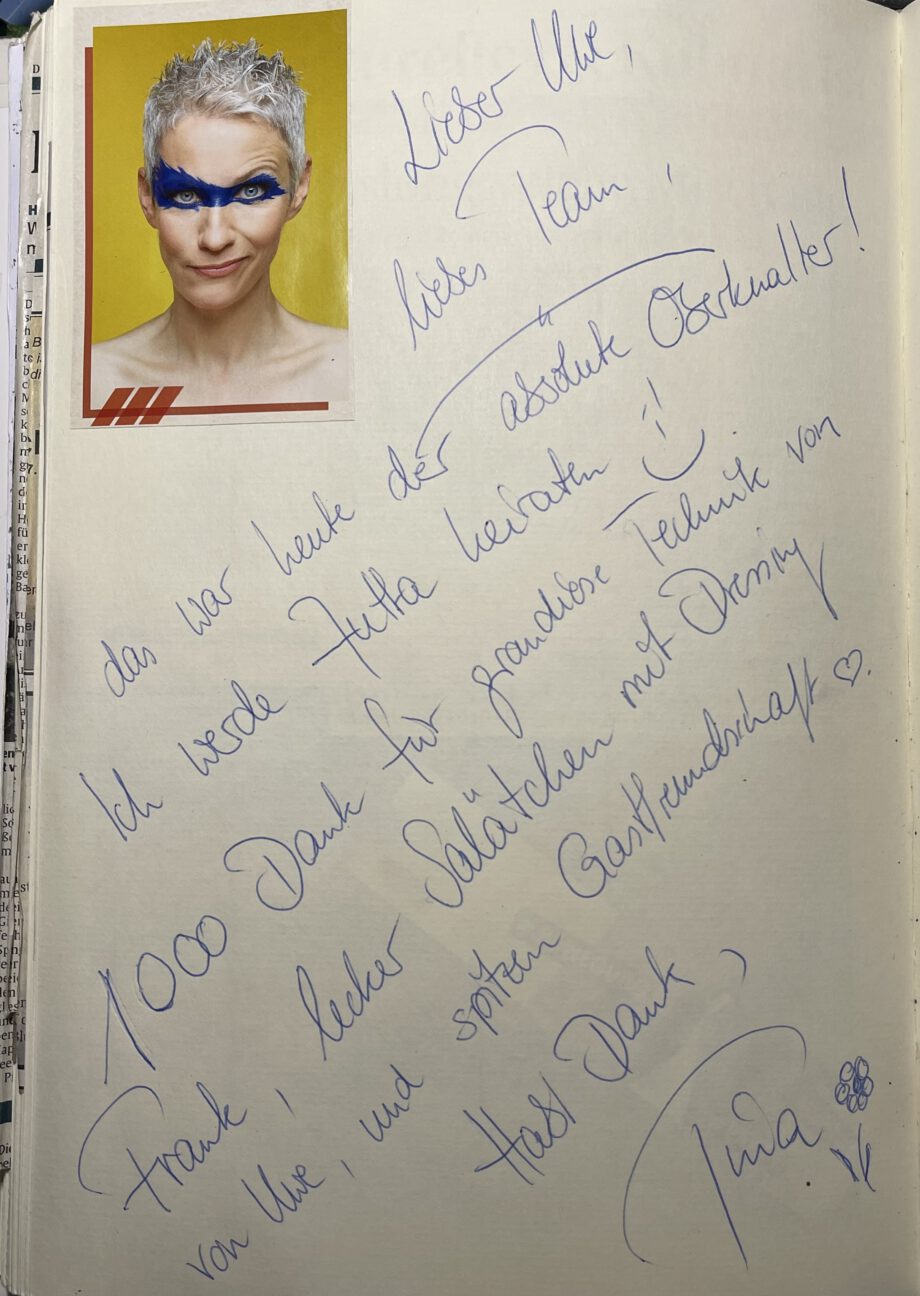 Lieber Uwe,
liebes Team,
das war heute der absolute Oberknaller!
Ich werde Jutta heiraten :-)!
1000 Dank für grandiose Technik von
Frank, lecker Salätchen mit Dressing
von Uwe, und spitzen Gastfreundschaft ♡.
Hast Dank,